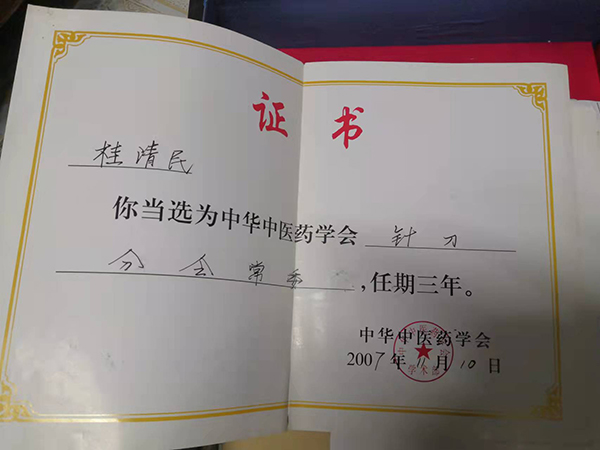 证书
桂清民
你当选为中华中医药学会 针刀
分会常委,任期三年。
中华中医药学会
2007年11月10日
学术部